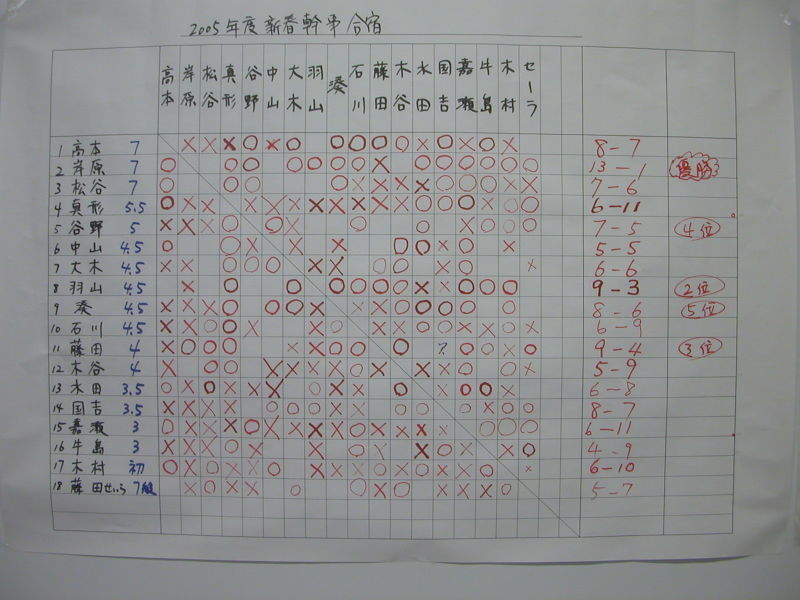 2005年度新春幹事合宿
高本 岸原 松谷 真形 谷野 中山 大木 羽山 湊 石川 藤田 木谷 水田 国吉 嘉瀬 牛島 木村 セーラ
1 高本 7 8-7
2 岸原 7 13-1 優勝
3 松谷 7 7-6
4 真形 5.5 6-11
5 谷野 5 7-5 4位
6 中山 4.5 5-5
7 大木 4.5 6-6
8 羽山 4.5 9-3 2位
9 湊 4.5 8-6 5位
10 石川 4.5 6-9
11 藤田 4 9-4 3位
12 木谷 4 5-9
13 水田 3.5 6-8
14 国吉 3.5 8-7
15 嘉瀬 3 6-11
16 牛島 3 4-9
17 木村 初 6-10
18 藤田せいら 7級 5-7